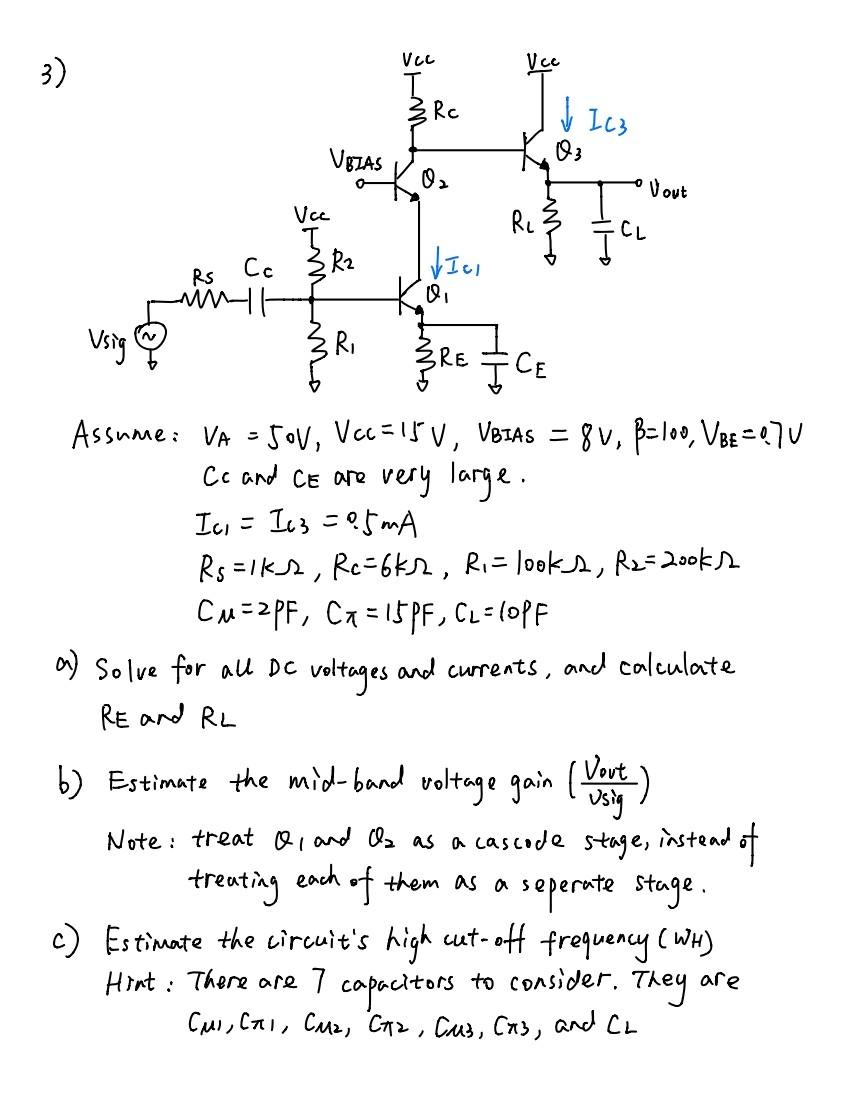 3)
Vcc Vcc
Rc
IC3
VBIAS
Q3
Q2
Vout
Vcc
RL
CL
R2
Rs Cc
Ic1
Q1
Vsig
R1
RE
CE
Assume: VA = 50V, Vcc=15V, VBIAS = 8V, β=100, VBE=0.7V
Cc and CE are very large.
Ic1 = Ic3 = 0.5mA
Rs=1kΩ, Rc=6kΩ, R1=100kΩ, R2=200kΩ
Cμ=2PF, Cπ=15PF, CL=10PF
a) Solve for all DC voltages and currents, and calculate
RE and RL
b) Estimate the mid-band voltage gain (Vout/Vsig)
Note: treat Q1 and Q2 as a cascode stage, instead of
treating each of them as a seperate stage.
c) Estimate the circuit's high cut-off frequency (WH)
Hint: There are 7 capacitors to consider. They are
Cμ1, Cπ1, Cμ2, Cπ2, Cμ3, Cπ3, and CL